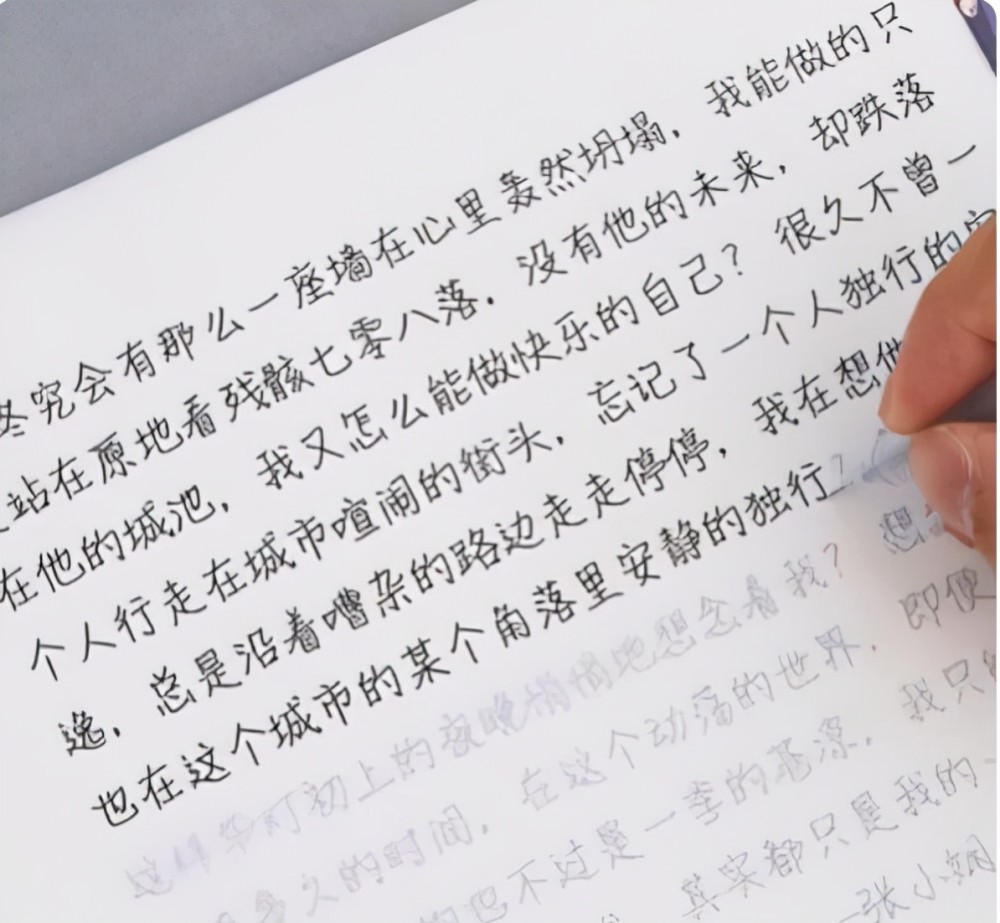 终究会有那么一座墙在心里轰然坍塌，我能做的只
站在原地看残骸七零八落．没有他的未来，却跌落
在他的城池，我又怎么能做快乐的自己？很久不曾一
个人行走在城市喧闹的街头，忘记了一个人独行的
逸，总是沿着嘈杂的路边走走停停，我在想他
也在这个城市的某个角落里安静的独行
这样华灯初上的夜晚悄悄地想念着我？想
多久的时间，在这个动荡的世界．即便
也不过是一季的 我只
其实都只是我的一
张小娴